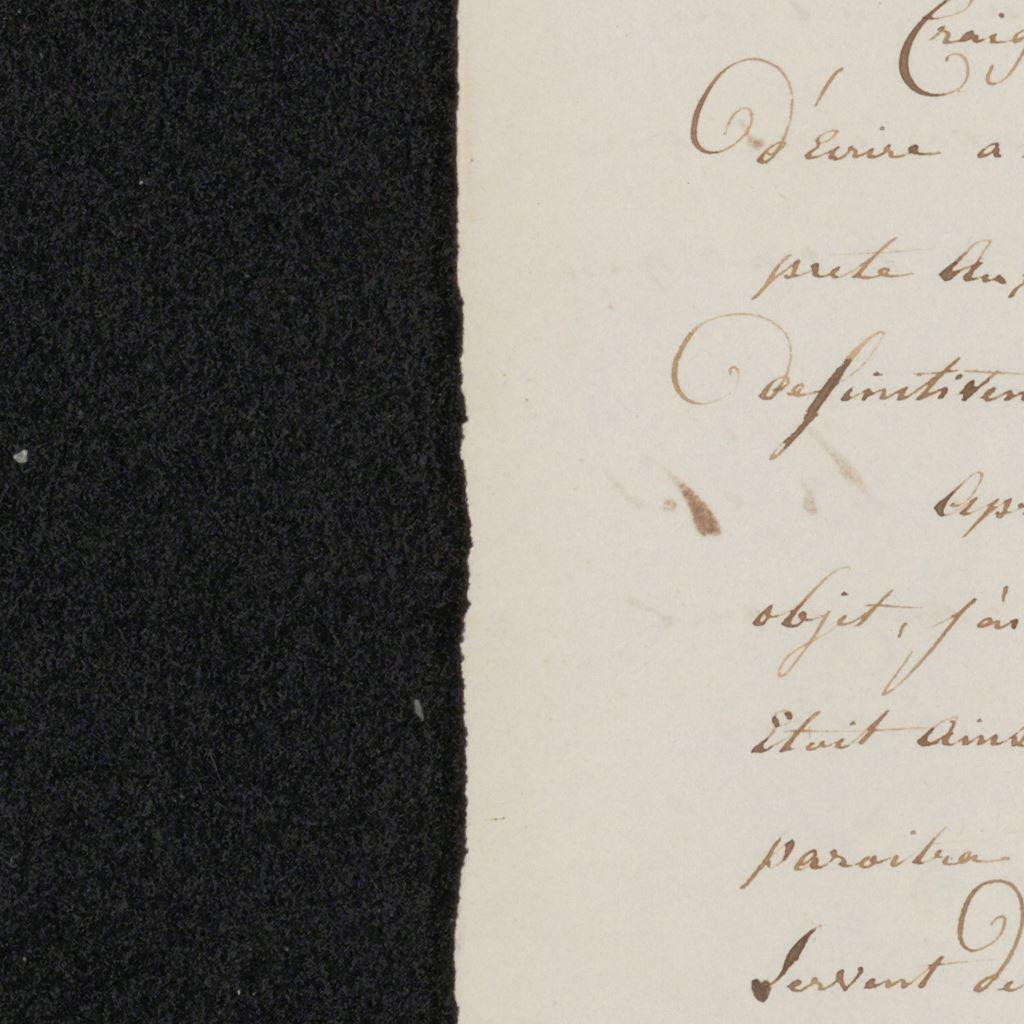 Craig
d'Ecrire a
prete Au
definitiven
Apr
objet, j'ai
Etoit Ains
paroitra
Servent de